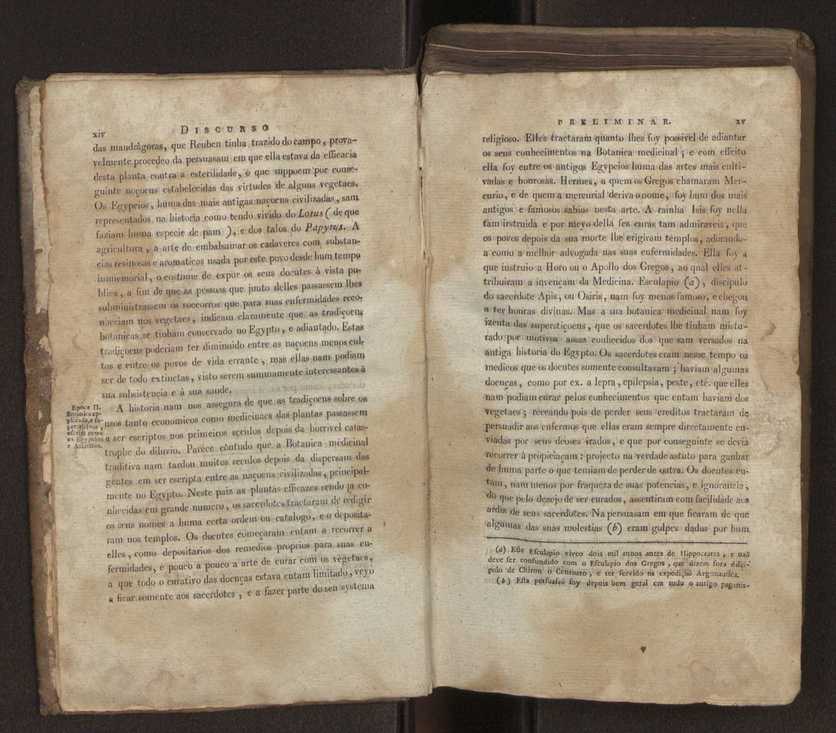 xiv DISCURSO
das mandrágoras, que Reuben tinha trazido do campo, prova-
velmente procedeo da persuasam em que ella estava da efficacia
desta planta contra a esterilidade, o que suppoem por conse-
guinte noçoens estabelecidas das virtudes de alguns vegetaes.
Os Egypcios, huma das mais antigas naçoens civilizadas, sam
representados na historia como tendo vivido do Lotus ( de que
faziam huma especie de pam ), e dos talos do Papyrus. A
agricultura, a arte de embalsamar os cadaveres com substan-
cias resinosas e aromaticas usada por este povo desde hum tempo
immemorial, o costume de expor os seus doentes à vista pu-
blica, a fim de que as pessoas que junto delles passassem lhes
subministrassem os soccorros que para suas enfermidades reco-
nheciam nos vegetaes, indicam claramente que as tradiçoens
botanicas se tinham conservado no Egypto, e adiantado. Estas
tradiçoens poderiam ter diminuido entre as naçoens menos cul-
tas e entre os povos de vida errante, mas ellas nam podiam
ser de todo extinctas, visto serem summamente interessantes à
sua subsistencia e à sua saude.
Epoca II.
A historia nam nos assegura de que as tradiçoens sobre os
usos tanto economicos como medicinaes das plantas passassem
a ser escriptas nos primeiros seculos depois da horrivel catas-
trophe do diluvio. Parece contudo que a Botanica medicinal
traditiva nam tardou muitos seculos depois da dispersam das
gentes em ser escripta entre as naçoens civilizadas, principal-
mente no Egypto. Neste paiz as plantas efficazes sendo ja co-
nhecidas em grande numero, os sacerdotes tractaram de redigir
os seus nomes a huma certa ordem ou catalogo, e o deposita-
ram nos templos. Os doentes começaram entam a recorrer a
elles, como depositarios dos remedios proprios para suas en-
fermidades, e pouco a pouco a arte de curar com os vegetaes,
a que todo o curativo das doenças estava entam limitado, veyo
a ficar somente aos sacerdotes, e a fazer parte do seu systema
PRELIMINAR. xv
religioso. Elles tractaram quanto lhes foy possivel de adiantar
os seus conhecimentos na Botanica medicinal; e com effeito
ella foy entre os antigos Egypcios huma das artes mais culti-
vadas e honrosas. Hermes, a quem os Gregos chamaram Mer-
curio, e de quem a mercurial deriva o nome, foy hum dos mais
antigos e famosos sabios nesta arte. A rainha Isis foy nella
tam instruida e por meyo della fez curas tam admiraveis, que
os povos depois da sua morte lhe erigiram templos, adorando-
a como a melhor advogada nas suas enfermidades. Ella foy a
que instruio a Horo ou o Apollo dos Gregos, ao qual elles at-
tribuiram a invençam da Medicina. Esculapio (a), discipulo
do sacerdote Apis, ou Osiris, nam foy menos famoso, e chegou
a ter honras divinas. Mas a sua botanica medicinal nam foy
izenta das superstiçoens, que os sacerdotes lhe tinham mistu-
rado por motivos assas conhecidos dos que sam versados na
antiga historia do Egypto. Os sacerdotes eram nesse tempo os
medicos que os doentes somente consultavam; haviam algumas
doenças, como por ex. a lepra, epilepsia, peste, etc. que elles
nam podiam curar pelos conhecimentos que entam haviam dos
vegetaes; receando pois de perder seus creditos tractaram de
persuadir aos enfermos que ellas eram sempre directamente en-
viadas por seus deoses irados, e que por conseguinte se devia
recorrer à propiciaçam: projecto na verdade astuto para ganhar
de huma parte o que temiam de perder de outra. Os doentes en-
tam, nam menos por fraqueza de suas potencias, e ignorancia,
do que pelo desejo de ser curados, assentiram com facilidade aos
ardis de seus sacerdotes. Na persuasam em que ficaram de que
algumas das suas molestias (b) eram golpes dados por hum
(a) Este Esculapio viveo dois mil annos antes de Hippocrates, e naõ
deve ser confundido com o Esculapio dos Gregos, que dizem fora disci-
pulo de Chiron o Centauro, e ter servido na expediçaõ Argonautica.
(b) Esta persuasaõ foy depois bem geral em todo o antigo paganis-